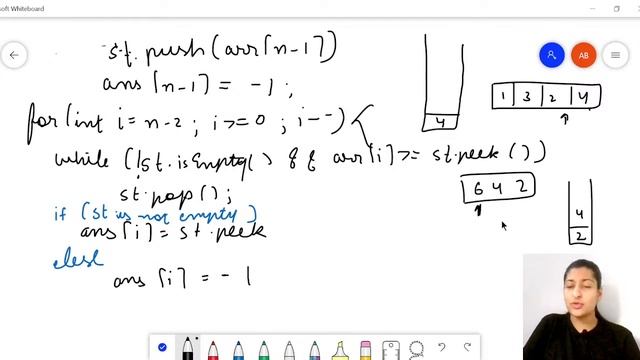 soft Whiteboard
st.push(arr[n-1])
ans[n-1] = -1;
for(int i = n-2; i>=0; i--){
while(!st.isEmpty() && arr[i]>= st.peek())
st.pop();
if (st is not empty)
ans[i] = st.peek
else
ans[i] = -1
4
1 3 2 4
6 4 2
4
2
AB